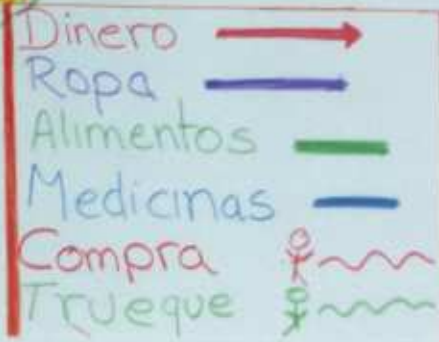 Dinero
Ropa
Alimentos
Medicinas
Compra
Trueque